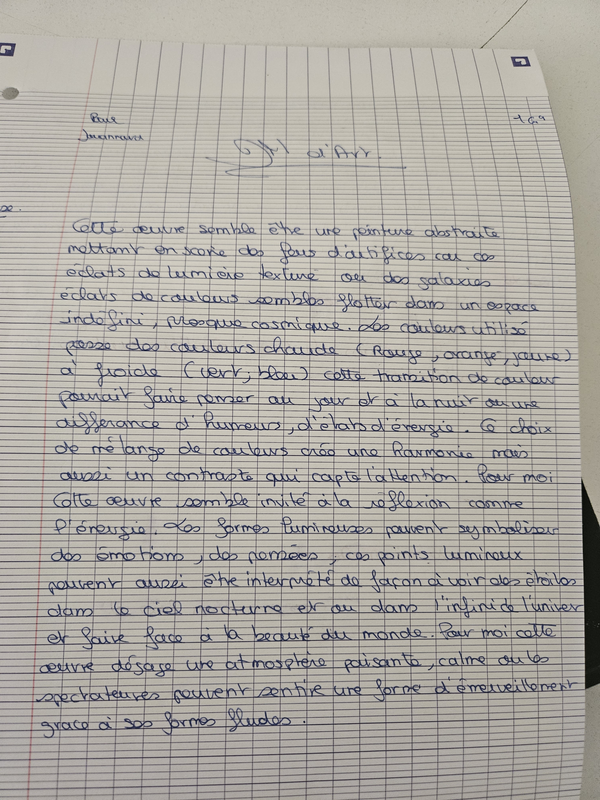 d'Art.
Cette œuvre semble être une peinture abstraite
mettant en scène des feus d'artifices car ces
éclats de lumière texturé ou des galaxies
éclats de couleurs sembles flotter dans un espace
indéfini, presque cosmique. Les couleurs utilisé
passe des couleurs chaude (Rouge, orange, jaune)
à froide (vert, bleu) cette transition de couleur
pourrait faire penser au jour et à la nuit ou une
différance d'humeurs, d'états d'énergie. Ce choix
de mélange de couleurs crée une Harmonie mais
aussi un contraste qui capte l'attention. Pour moi
Cette œuvre semble invité à la réflexion comme
l'énergie. Les formes lumineuses peuvent symboliser
des émotions, des pensées, ces points lumineux
peuvent aussi être interprété de façon à voir des étoiles
dans le ciel nocturne et ou dans l'infini de l'univer
et faire face à la beauté du monde. Pour moi cette
œuvre dégage une atmosphère paisante, calme ou les
spectrateures peuvent sentire une forme d'émerveillement
grace à ses formes fludes.